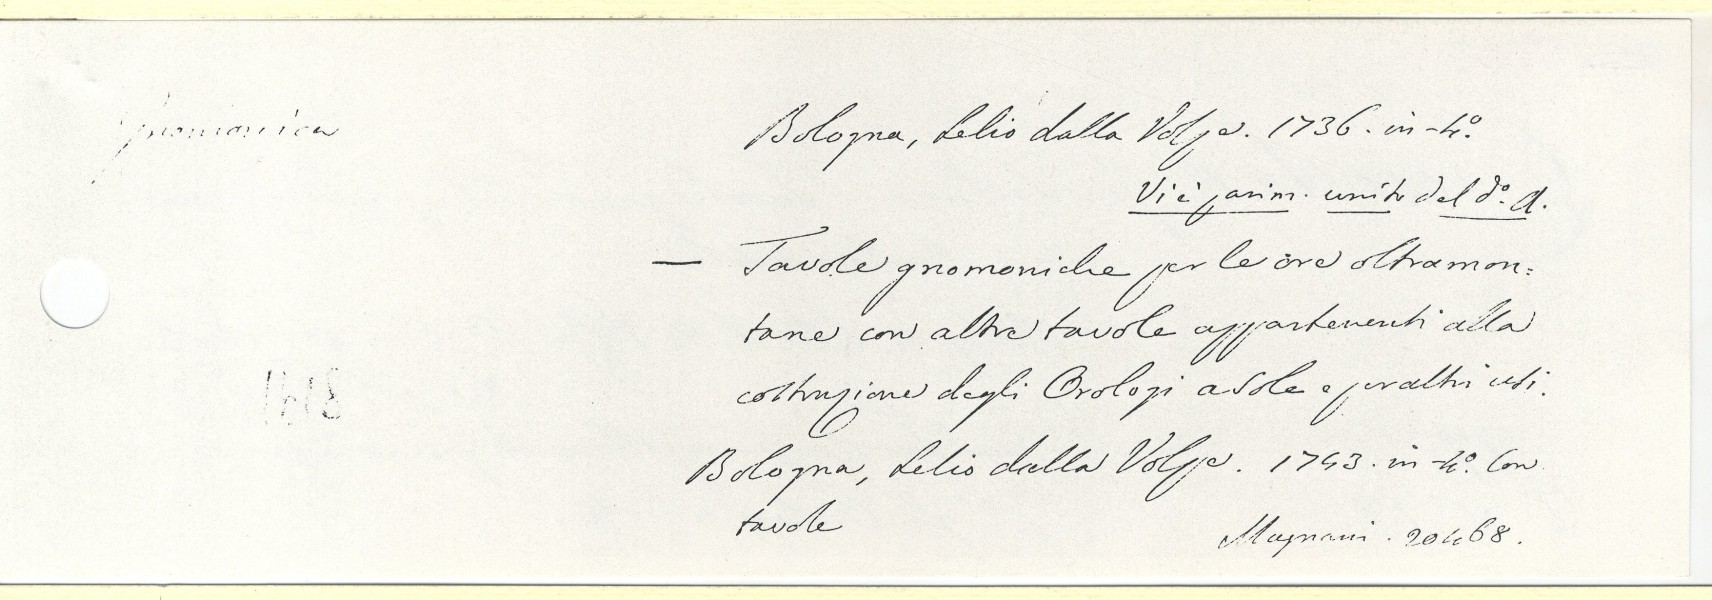 gnomonica
Bologna, Lelio dalla Volpe. 1736. in-4°.
Vi è panim. unito del d°. A.
— Tavole gnomoniche per le ore oltramon=
tane con altre tavole appartenenti alla
costruzione degli Orologi a Sole e per altri usi.
Bologna, Lelio dalla Volpe. 1743. in-4°. Con
tavole
Magnani. 20468.